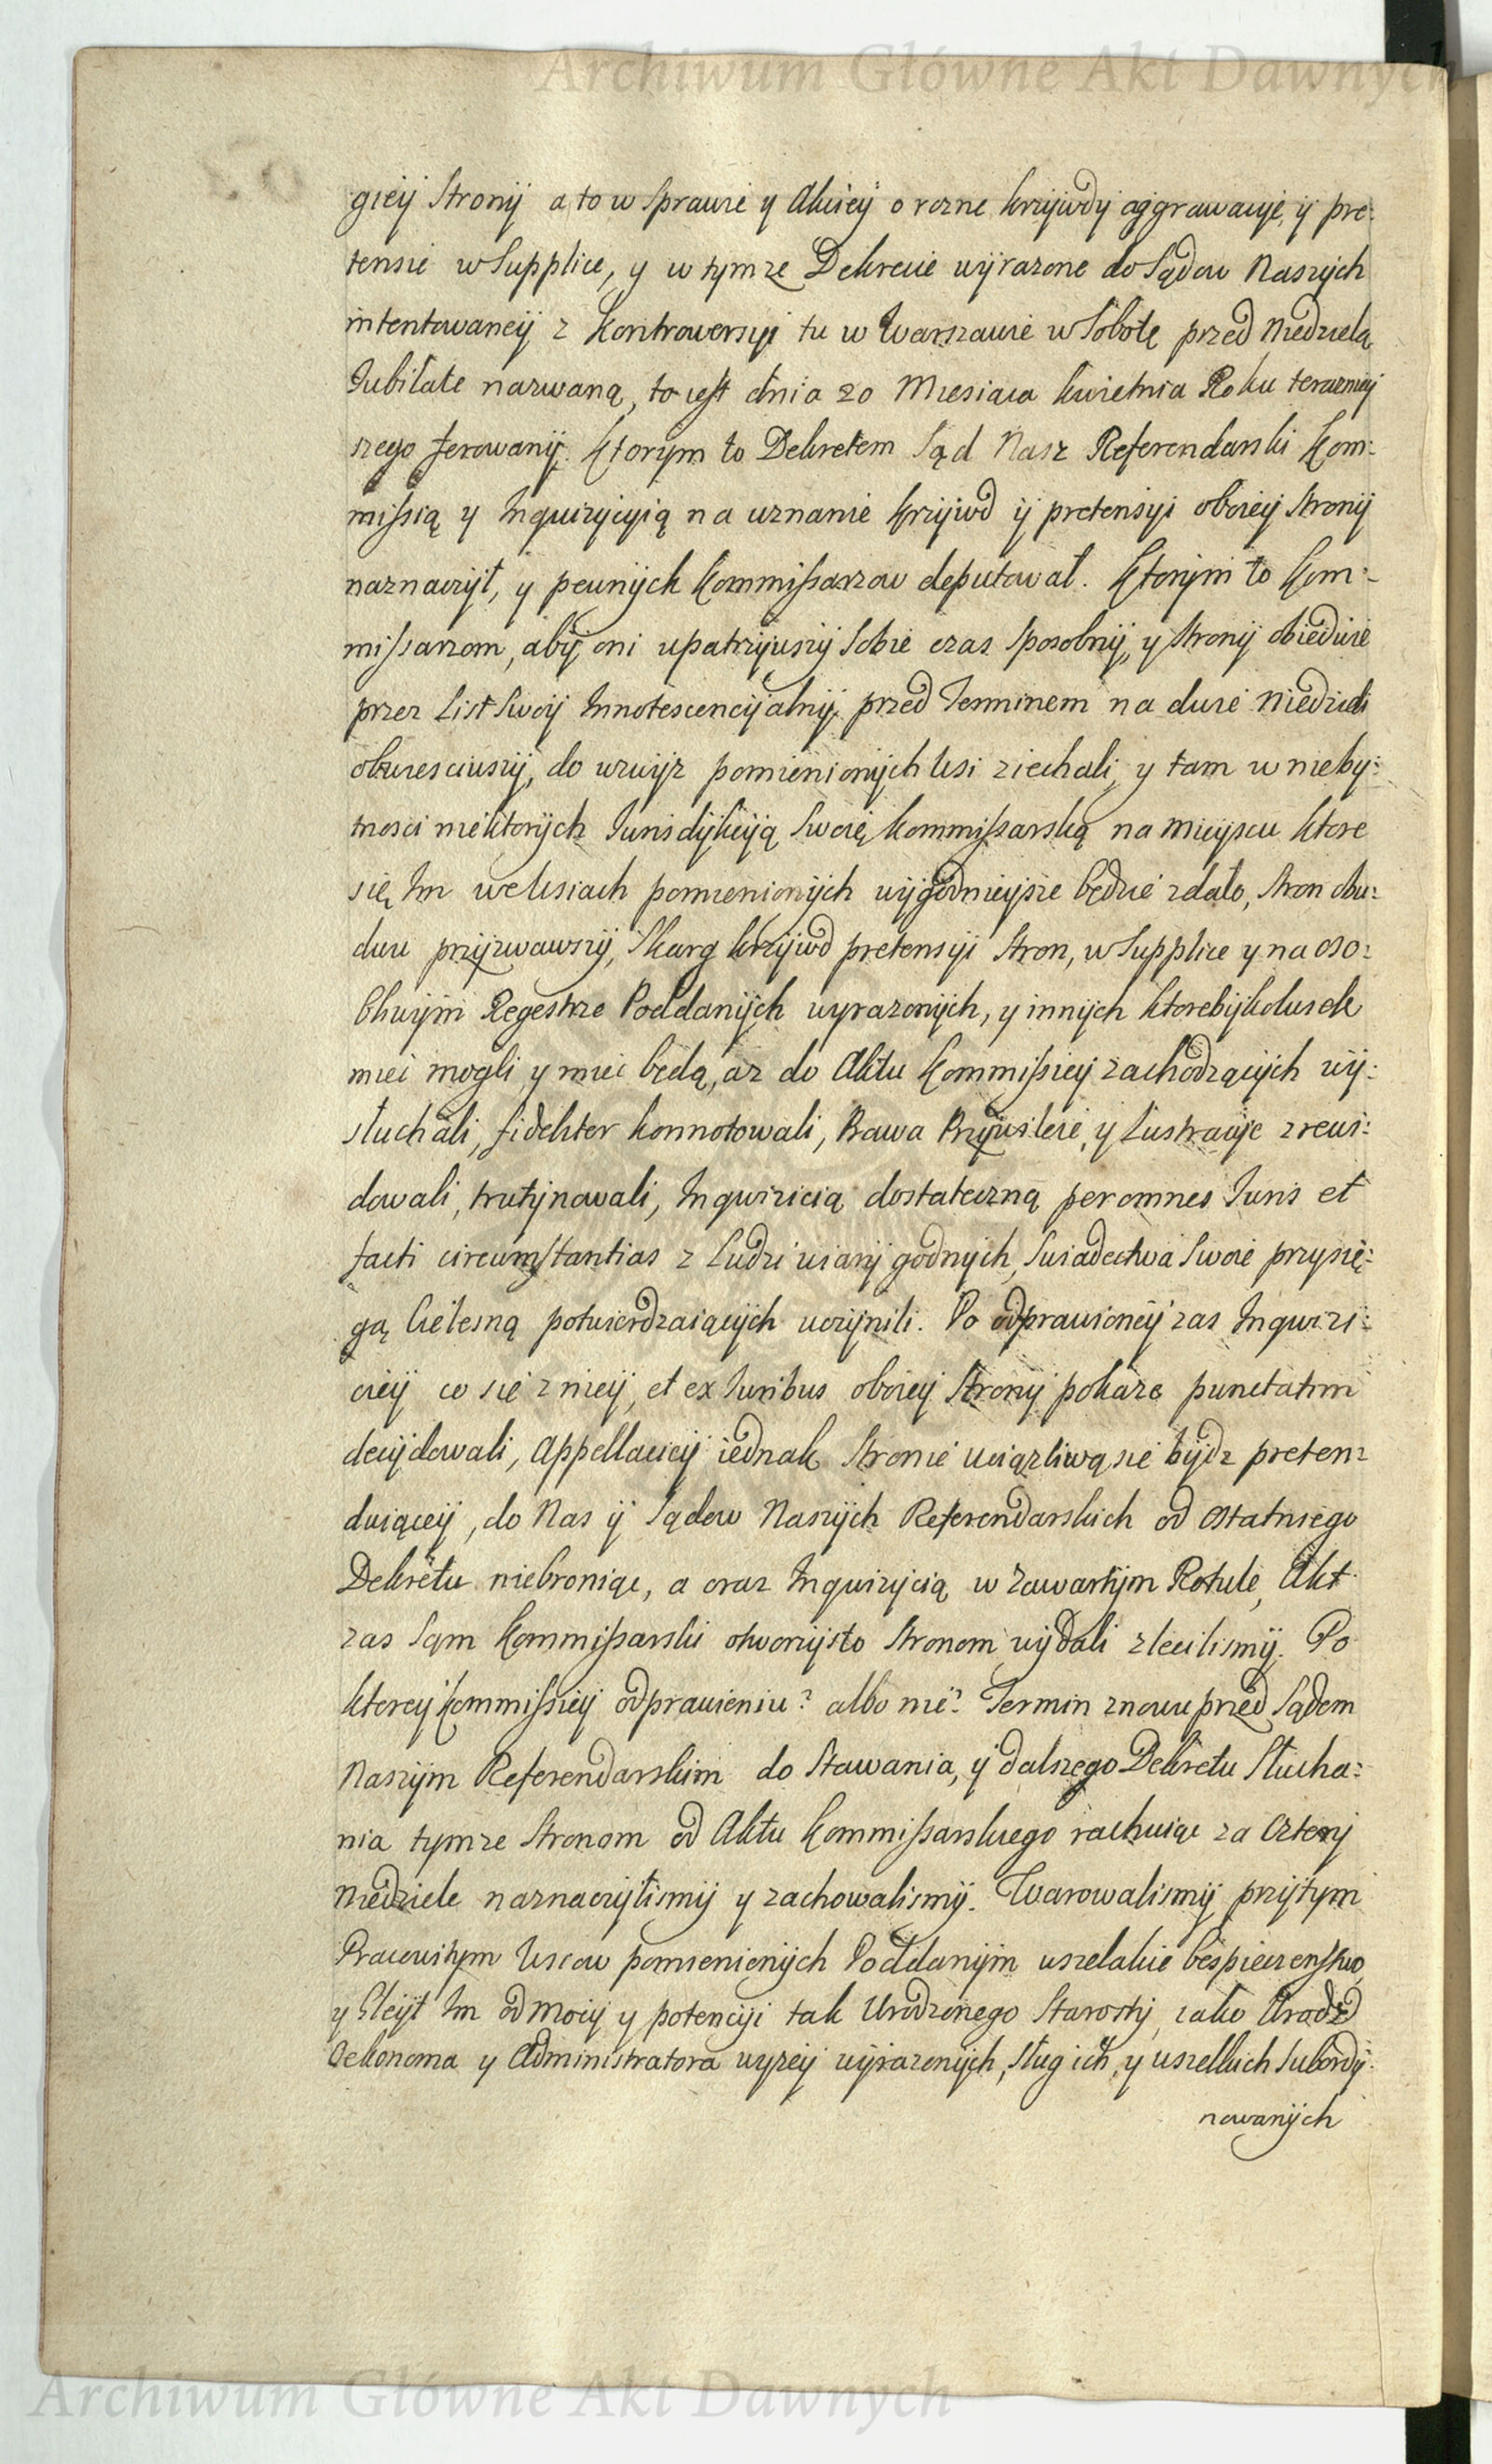 Archiwum Główne Akt Dawnych
giey Strony a to w Sprawie y Akciey o rozne krzywdy aggrawacye, y pre:
tensie w Supplice, y w tymze Dekrecie wyrazone do Sądow Naszych
intentowaney z Kontrowersyi tu w Warszawie w Sobotę przed Niedzielą
Jubilate nazwaną, to iest dnia 20 Miesiąca kwietnia Roku terazniey
szego ferowany. Ktorym to Dekretem Sąd Nasz Referendarski Kom:
missią y Inquizycyią na uznanie krzywd y pretensyi oboiey Strony
naznaczył, y pewnych Kommissarzow deputował. Ktorym to Kom:
missarzom, aby oni upatrzywszy Sobie czas Sposobny, y Strony obiedwie
przez List Swoy Innotescencyialny przed Terminem na dwie Niedzieli
obwiesciwszy, do wzwyz pomienionych Wsi ziechali, y tam w nieby:
tnosci niektorych Jurisdykcyią Swoię Kommissarską na mieyscu ktore
się Im we Wsiach pomienionych wygodnieysze będzie zdało, Stron obu:
dwu przyzwawszy, Skarg krzywd pretensyi Stron, w Supplice y na oso:
bliwym Regestrze Poddanych wyrazonych, y innych ktorebykolwiek
miec mogli y miec będą, az do Aktu Kommissiey zachodzących wy:
słuchali, fideliter konnotowali, Prawa Przywileie, y Lustracye zrewi:
dowali, trutynowali, Inqwizicią dostateczną per omnes Juris et
facti circumstantias z Ludzi wiary godnych, Swiadectwa Swoie przysię:
gą Cielesną potwierdzaiących uczynili. Po odprawioney zas Inqwizi:
ciey co się z niey, et ex Juribus oboiey Strony pokaze punctatim
decydowali, Appellaciey iednak Stronie uciązliwą się bydz preten:
duiącey, do Nas y Sądow Naszych Referendarskich od ostatniego
Dekretu niebroniąc, a oraz Inquizycią w zawartym Rotule, Akt
zas Sam Kommissarski otworzysto Stronom wydali zlecilismy. Po
ktorey Kommissiey odprawieniu? albo nie? Termin znowu przed Sądem
Naszym Referendarskim do Stawania, y dalszego Dekretu Słucha:
nia tymze Stronom od Aktu Kommissarskiego rachuiąc za Cztery
Niedziele naznaczylismy y zachowalismy. Warowalismy przytym
Pracowitym Wsiow pomienionych Poddanym wszelakie bespieczenstwo,
y Gleyt Im od mocy y potencyi tak Urodzonego Starosty, iako Urodz
Oekonoma y Administratora wyzey wyrazonych, Sług ich, y wszelkich Subordy:
nowanych
Archiwum Główne Akt Dawnych